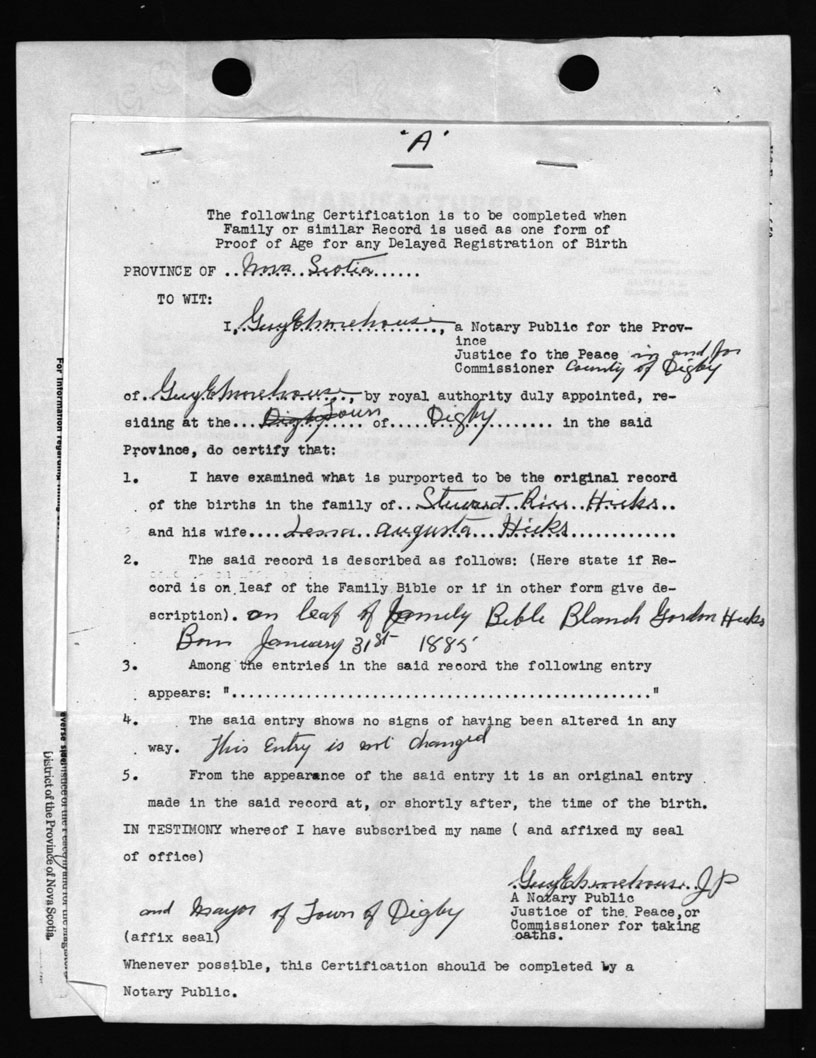 "A"
The following Certification is to be completed when
Family or similar Record is used as one form of
Proof of Age for any Delayed Registration of Birth
PROVINCE OF ..Nova Scotia......
TO WIT:
I, Guy E Morehouse, a Notary Public for the Prov-
ince
Justice fo the Peace in and for
Commissioner County of Digby
of. Guy E Morehouse, by royal authority duly appointed, re-
siding at the.... Town of..... Digby ......... in the said
Province, do certify that:
1. I have examined what is purported to be the original record
of the births in the family of.. Stewart Rice Hicks..
and his wife.... augusta Hicks..............
2. The said record is described as follows: (Here state if Re-
cord is on leaf of the Family Bible or if in other form give de-
scription). on leaf of family Bible Blanch Gordon Hicks
Born January 31st 1885
3. Among the entries in the said record the following entry
appears: "...................................................."
4. The said entry shows no signs of having been altered in any
way. This Entry is not changed
5. From the appearance of the said entry it is an original entry
made in the said record at, or shortly after, the time of the birth.
IN TESTIMONY whereof I have subscribed my name ( and affixed my seal
of office)
Guy E Morehouse JP
A Notary Public
and Mayor of Town of Digby
Justice of the Peace, or
Commissioner for taking
oaths.
(affix seal)
Whenever possible, this Certification should be completed by a
Notary Public.
For information regarding
District of the Province of Nova Scotia.